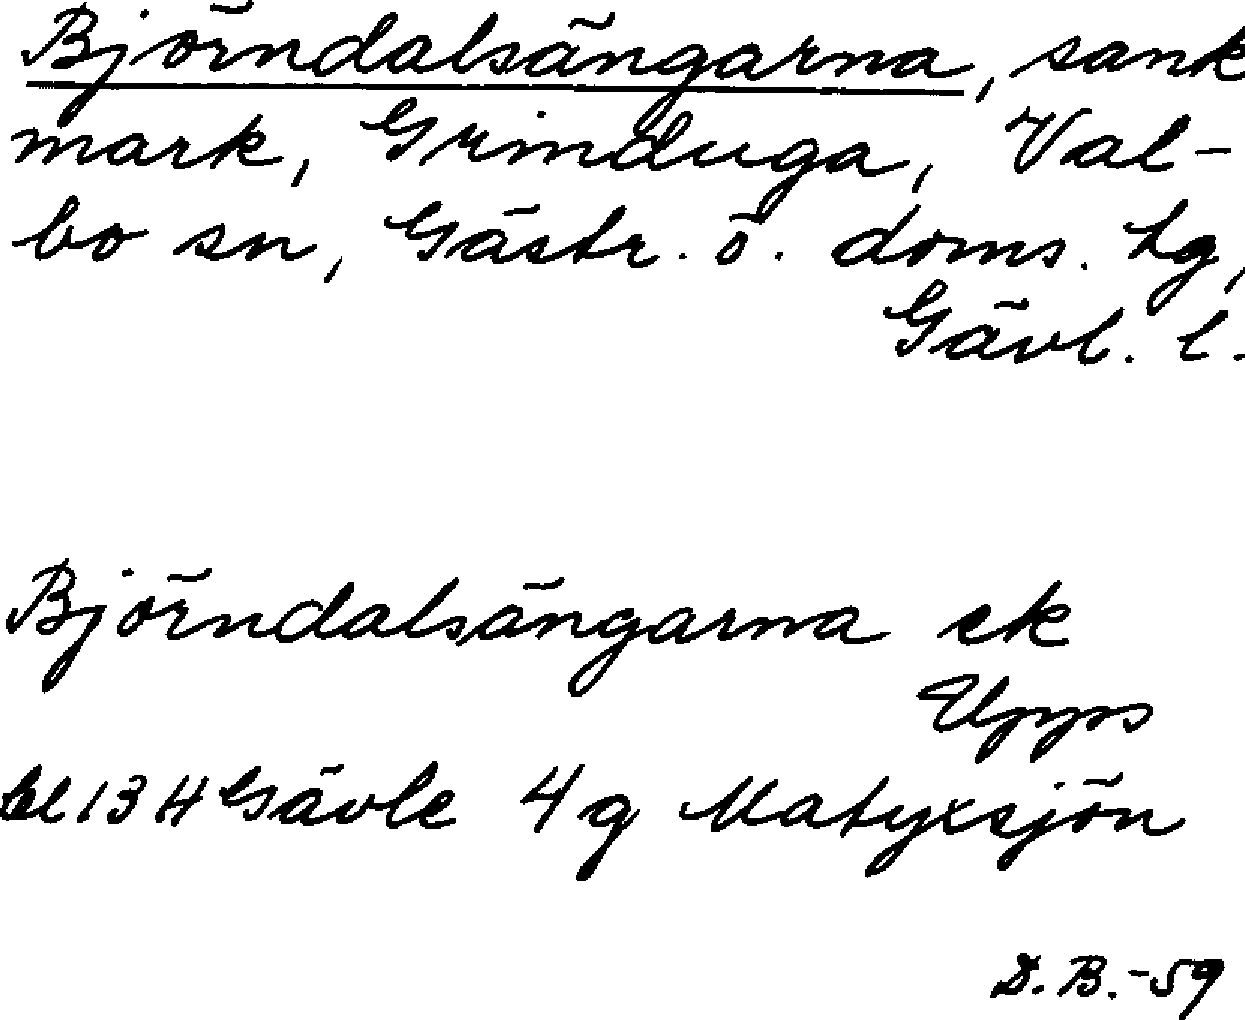 Björndalsängarna, sank
mark, Grinduga, Val-
bo sn, Gästr. ö. doms. tg,
Gävl. l.
Björndalsängarna ek
Upps
bl 13 H Gävle 4 g Matyxsjön
D. B. -59